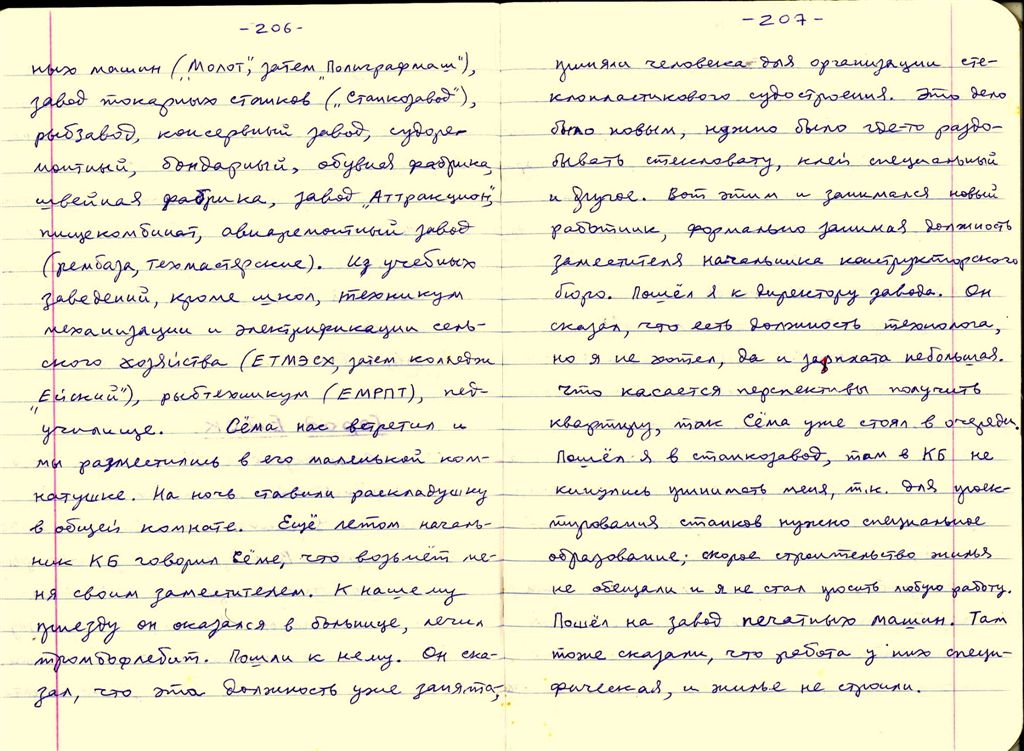 -206-
ных машин („Молот", затем „Полиграфмаш"),
завод токарных станков („Станкозавод"),
рыбзавод, консервный завод, судоре-
монтный, бондарный, обувная фабрика,
швейная фабрика, завод „Аттракцион",
пищекомбинат, авиаремонтный завод
(рембаза, техмастярские). Из учебных
заведений, кроме школ, техникум
механизации и электрификации сель-
ского хозяйства (ЕТМЭСХ, затем колледж
„Ейский"), рыбтехникум (ЕМРПТ), пед-
училище. Сёма нас встретил и
мы разместились в его маленькой ком-
натушке. На ночь ставили раскладушку
в общей комнате. Ещё летом началь-
ник КБ говорил Сёме, что возьмёт ме-
ня своим заместителем. К нашему
приезду он оказался в больнице, лечил
тромбофлебит. Пошли к нему. Он ска-
зал, что эта должность уже занята,
-207-
приняли человека для организации сте-
клопластикового судостроения. Это дело
было новым, нужно было где-то раздо-
бывать стекловату, клей специальный
и другое. Вот этим и занимался новый
работник, формально занимая должность
заместителя начальника конструкторского
бюро. Пошёл я к директору завода. Он
сказал, что есть должность технолога,
но я не хотел, да и зарплата небольшая.
Что касается перспективы получить
квартиру, так Сёма уже стоял в очереди.
Пошёл я в станкозавод, там в КБ не
кинулись принимать меня, т.к. для проек-
тирования станков нужно специальное
образование; скорое строительство жилья
не обещали и я не стал просить любую работу.
Пошёл на завод печатных машин. Там
тоже сказали, что работа у них специ-
фическая, и жилье не строили.